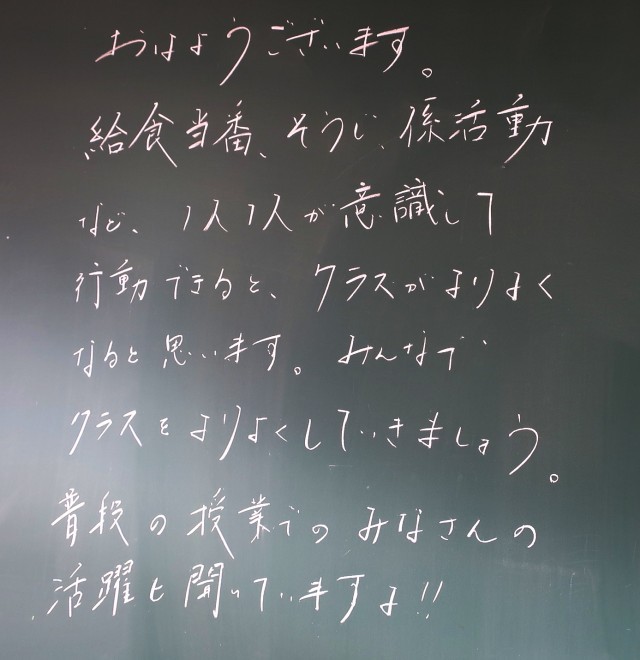 おはようございます。
給食当番、そうじ、係活動
など、1人1人が意識して
行動できると、クラスがよりよく
なると思います。みんなで
クラスをよりよくしていきましょう。
普段の授業でのみなさんの
活躍も聞いていますよ!!